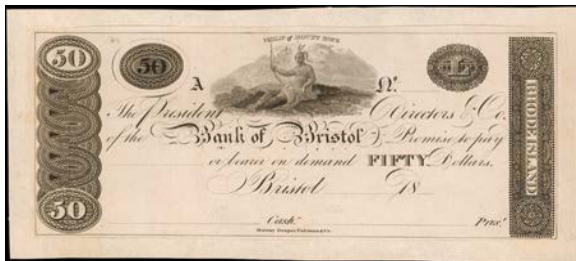 PHILIP of MOUNT HOPE
50
50
A
No.
L
The President Directors & Co.
of the Bank of Bristol Promise to pay
or bearer on demand FIFTY Dollars.
Bristol 18
50
Cash.r Pres.t
Murray Draper Fairman & Co.
RHODE ISLAND